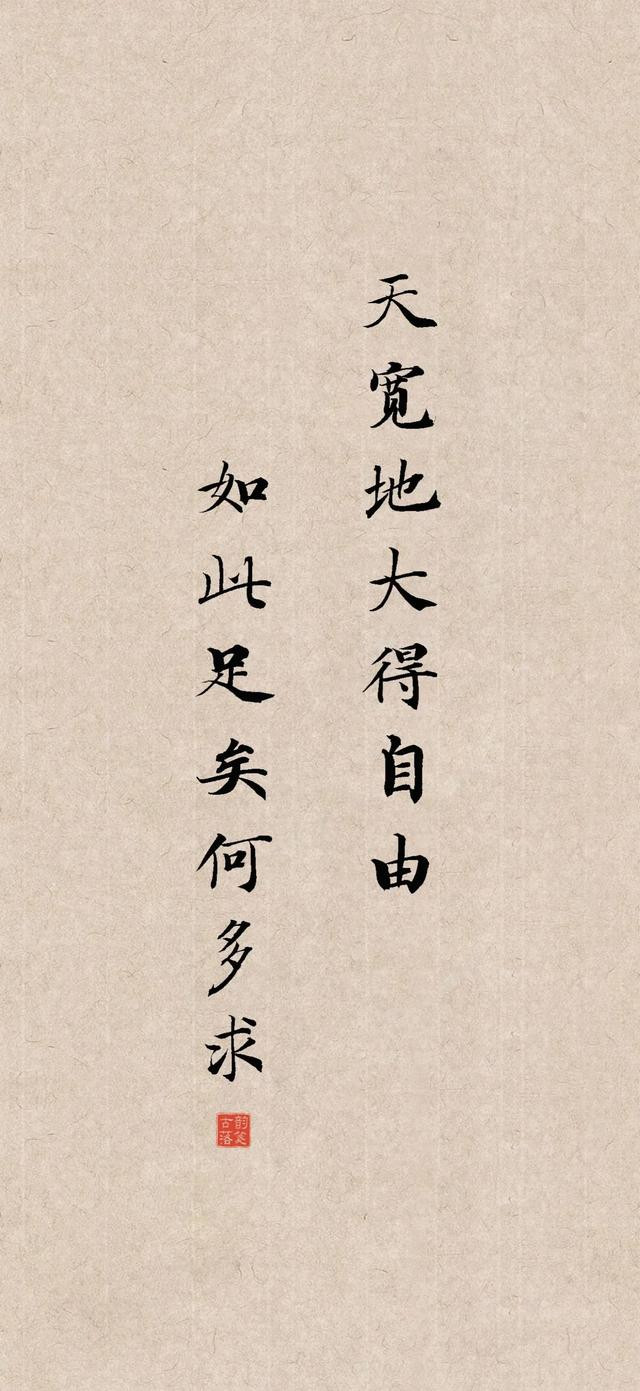 天宽地大得自由
如此足矣何多求